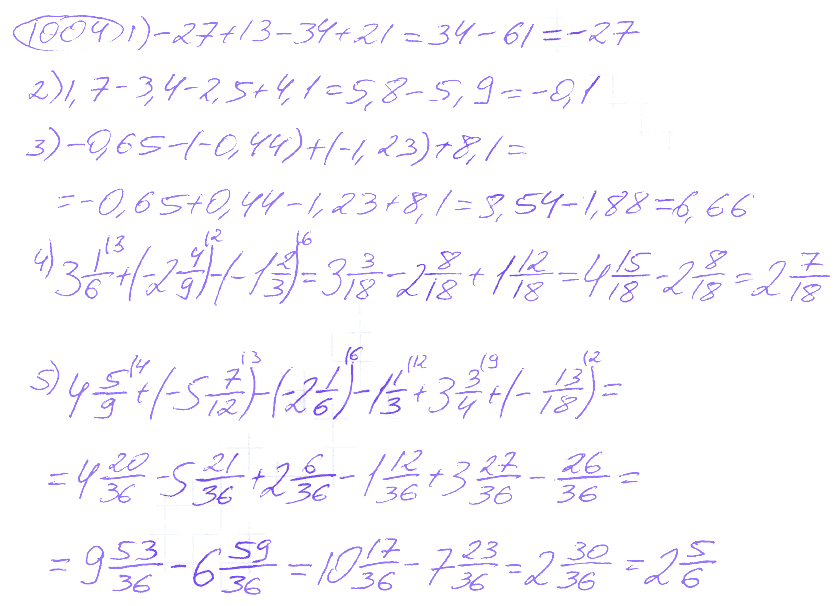 1004 1) -27+13-34+21=34-61=-27
2) 1,7-3,4-2,5+4,1=5,8-5,9=-0,1
3) -0,65-(-0,44)+(-1,23)+8,1=
=-0,65+0,44-1,23+8,1=8,54-1,88=6,66
4) 3 1/6 ⁽³ + (-2 4/9 ⁽²) - (-1 2/3 ⁽⁶) = 3 3/18 - 2 8/18 + 1 12/18 = 4 15/18 - 2 8/18 = 2 7/18
5) 4 5/9 ⁽⁴ + (-5 7/12 ⁽³) - (-2 1/6 ⁽⁶) - 1 1/3 ⁽¹² + 3 3/4 ⁽⁹ + (- 13/18 ⁽²) =
= 4 20/36 - 5 21/36 + 2 6/36 - 1 12/36 + 3 27/36 - 26/36 =
= 9 53/36 - 6 59/36 = 10 17/36 - 7 23/36 = 2 30/36 = 2 5/6